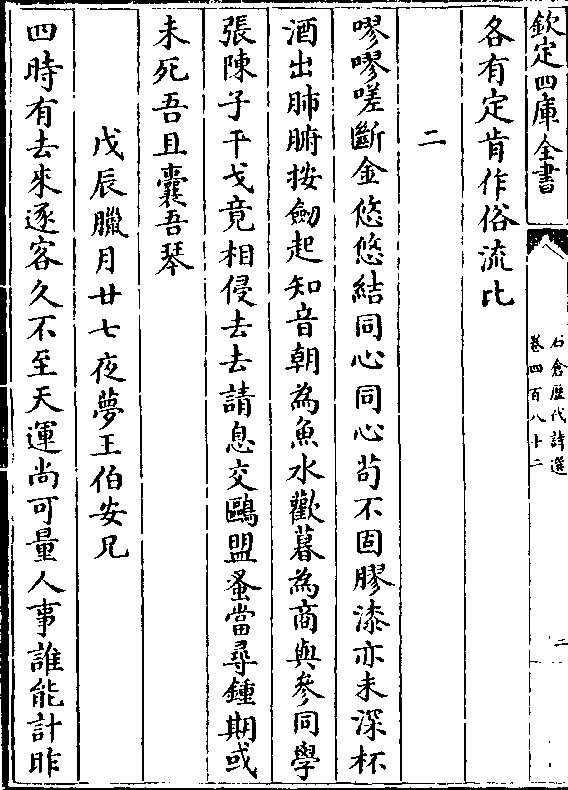 欽定四庫全書
石倉歷代詩選
卷四百八十二
二
各有定肯作俗流比
二
嘐嘐嗟斷金悠悠結同心同心苟不固膠漆亦未深杯
酒出肺腑按劒起知音朝為魚水歡暮為商與參同學
張陳子干戈竟相侵去去請息交鷗盟蚤當尋鍾期或
未死吾且囊吾琴
戊辰臘月廿七夜夢王伯安兄
四時有去來逐客久不至天運尚可量人事誰能計昨